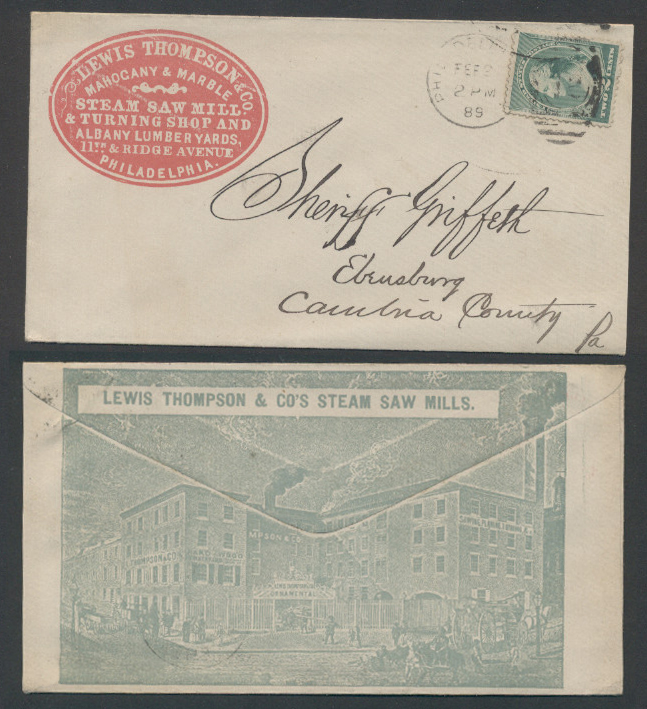 LEWIS THOMPSON & CO.
MAHOGANY & MARBLE
STEAM SAW MILL
& TURNING SHOP AND
ALBANY LUMBER YARDS,
11TH & RIDGE AVENUE
PHILADELPHIA.
2 PM
89
Sheriff Griffeth
Ebensburg
Cambria County
Pa
LEWIS THOMPSON & CO'S STEAM SAW MILLS.
MPSON & CO